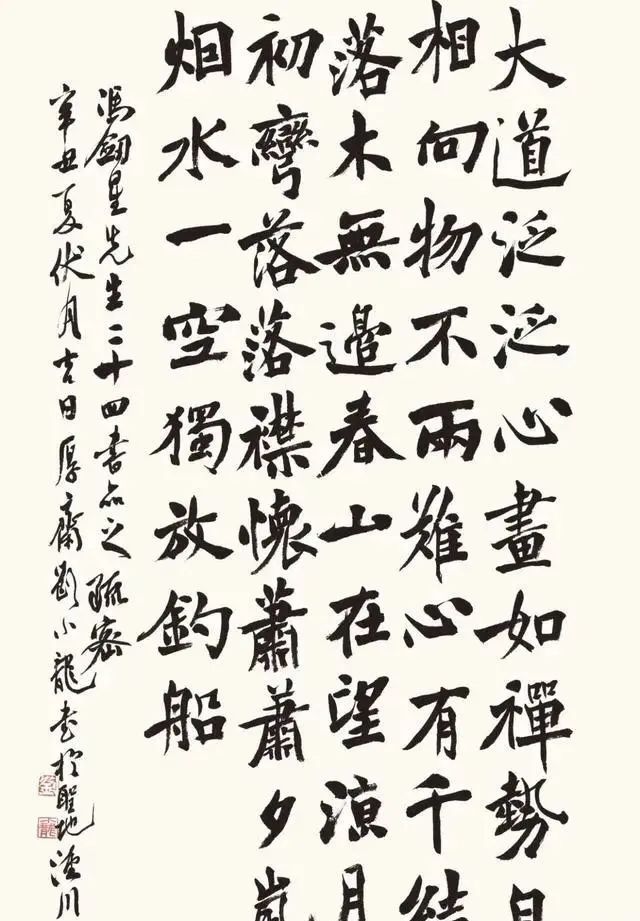 大道泛泛心畫如禪勢
相向物不兩難心有千結
落木無邊春山在望涼月
初彎落落襟懷蕭蕭夕嵐
烟水一空獨放釣船
馮劍星先生二十四書品之疏密
辛丑夏伏月吉日厚齋劉小龍書於聖地涇川